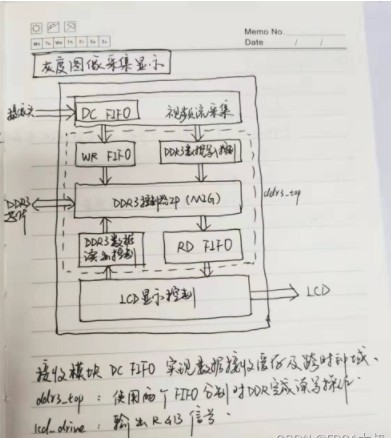 Memo No.
Mo Tu We Th Fr Sa Su
Date / /
灰度图像采集显示
摄像头
DC FIFO 视频流采集
WR FIFO DDR3数据写控制
DDR3芯片 DDR3控制器IP (MIG) ddr3_top
DDR3数据读出控制 RD FIFO
LCD显示控制 LCD
接收模块 DC FIFO 实现数据接收缓存及跨时钟域.
ddr3_top : 使用两个FIFO分别对DDR完成读写操作.
lcd_drive : 输出RGB信号.